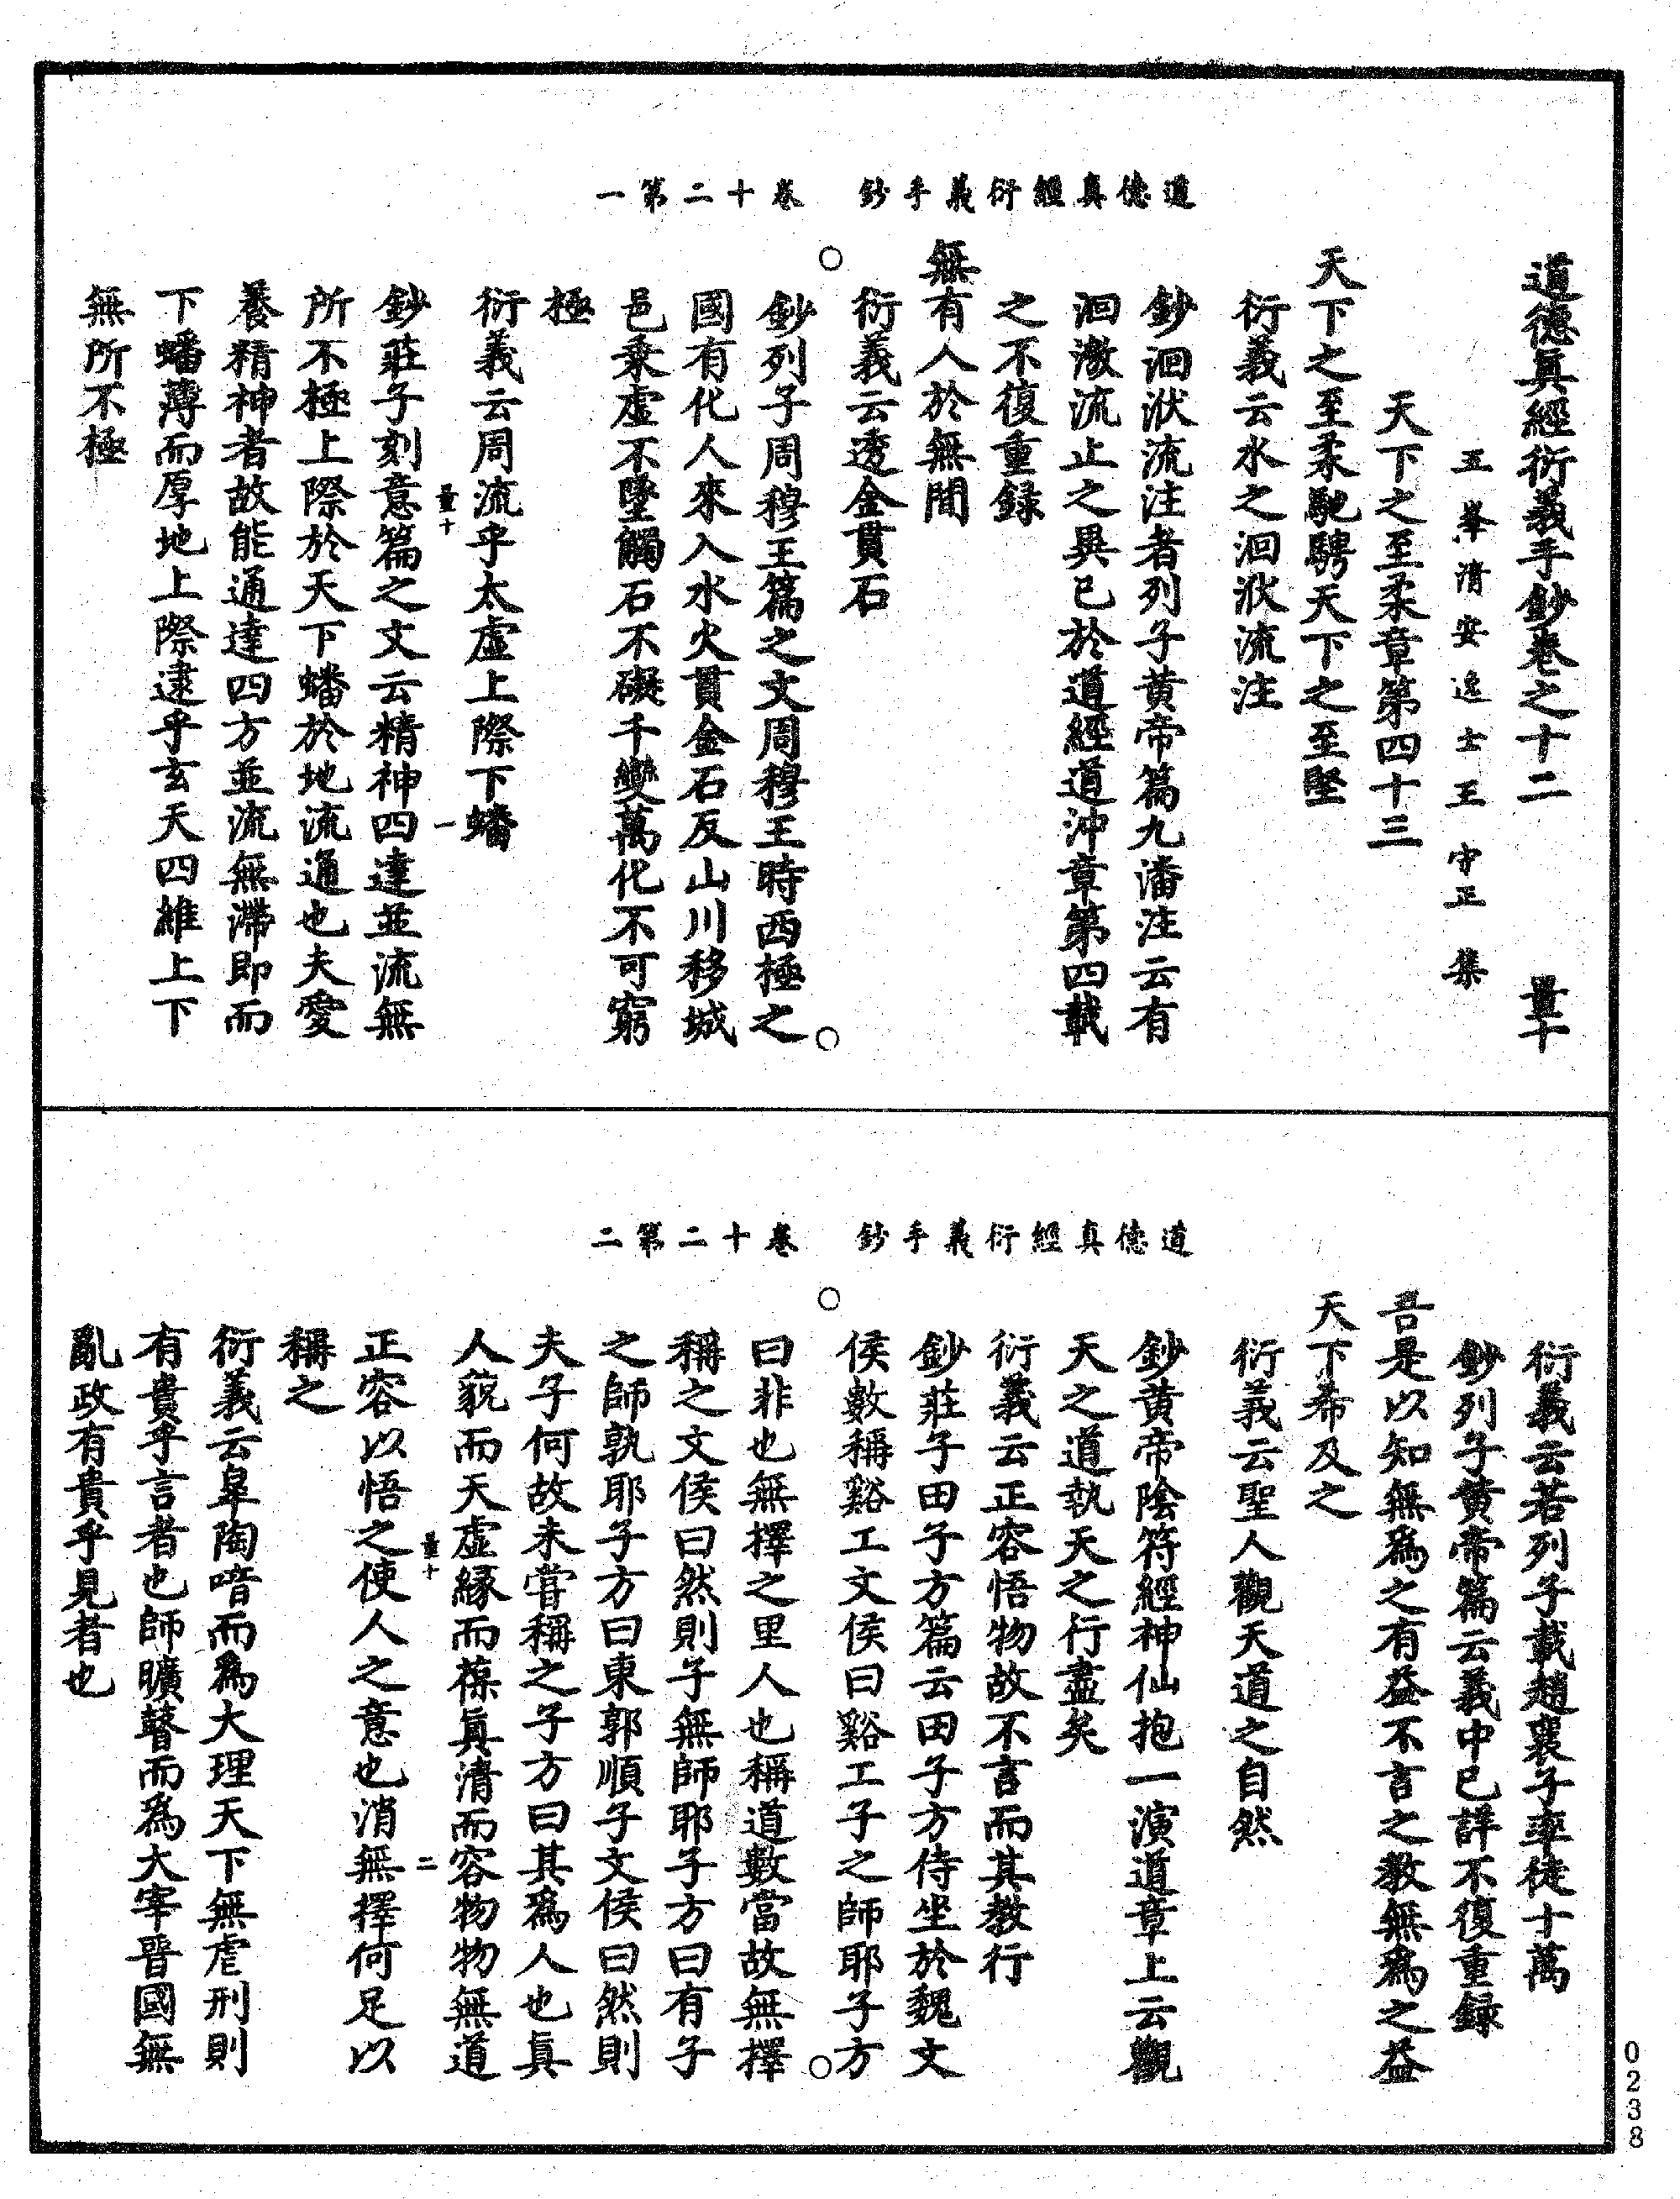 道德真經衍義手鈔 卷十二第一
道德眞經衍義手鈔卷之十二 量十
五峯清安逸士王守正集
天下之至柔章第四十三
天下之至柔馳騁天下之至堅
衍義云水之洄洑流注
鈔洄洑流注者列子黄帝篇九潘注云有
洄激流止之異已於道經道沖章第四載
之不復重録
無有人於無間
衍義云透金貫石
鈔列子周穆王篇之文周穆王時西極之
國有化人來入水火貫金石反山川移城
邑乘虛不墜觸石不礙千變萬化不可窮
極
衍義云周流乎太虛上際下蟠
量十 一
鈔莊子刻意篇之文云精神四達並流無
所不極上際於天下蟠於地流通也夫愛
養精神者故能通達四方並流無滯即而
下蟠薄而厚地上際逮乎玄天四維上下
無所不極
道德真經衍義手鈔 卷十二第二
衍義云若列子載趙襄子率徒十萬
鈔列子黄帝篇云義中已詳不復重録
吾是以知無爲之有益不言之教無爲之益
天下希及之
衍義云聖人觀天道之自然
鈔黄帝陰符經神仙抱一演道章上云觀
天之道執天之行盡矣
衍義云正容悟物故不言而其教行
鈔莊子田子方篇云田子方侍坐於魏文
侯數稱谿工文侯曰谿工子之師耶子方
曰非也無擇之里人也稱道數當故無擇
稱之文侯曰然則子無師耶子方曰有子
之師孰耶子方曰東郭順子文侯曰然則
夫子何故未嘗稱之子方曰其爲人也眞
人貌而天虛緣而葆眞清而容物物無道
量十 二
正容以悟之使人之意也消無擇何足以
稱之
衍義云皐陶喑而爲大理天下無虐刑則
有貴乎言者也師曠瞽而爲大宰晉國無
亂政有貴乎見者也
0238